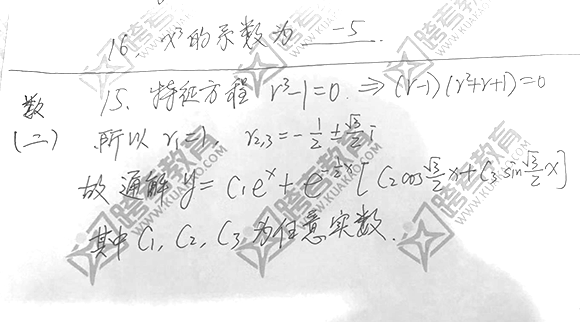 16. x³的系数为 -5
数 15. 特征方程 r³-1=0. ⇒ (r-1)(r²+r+1)=0
(二) 所以 r₁=1, r₂,₃=-1/2±√3/2 i
故通解 y= C₁eˣ+e^(-1/2x)[C₂cos√3/2x+C₃sin√3/2x]
其中 C₁, C₂, C₃ 为任意实数.
跨考教育
WWW.KUAKAO.COM